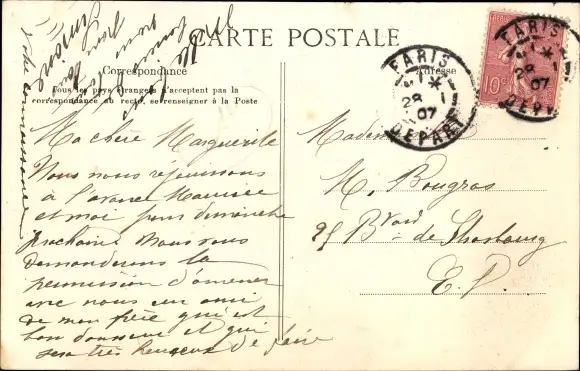 CARTE POSTALE
Correspondance
Tous les pays étrangers n'acceptent pas la
correspondance au recto, se renseigner à la Poste
Adresse
PARIS
28 1
07
DEPART
PARIS
28 1
07
DEPART
10 c
Ma chère Marguerite
Nous nous réjouissons
à l'avance Maurice
et moi pour dimanche
prochain Nous vous
demanderons la
permission d'amener
avec nous un ami
de mon frère qui est
bon danseur et qui
sera très heureux de faire
votre connaissance
Madame
M. Bougras
25 Bvard de Strasbourg
E. V.